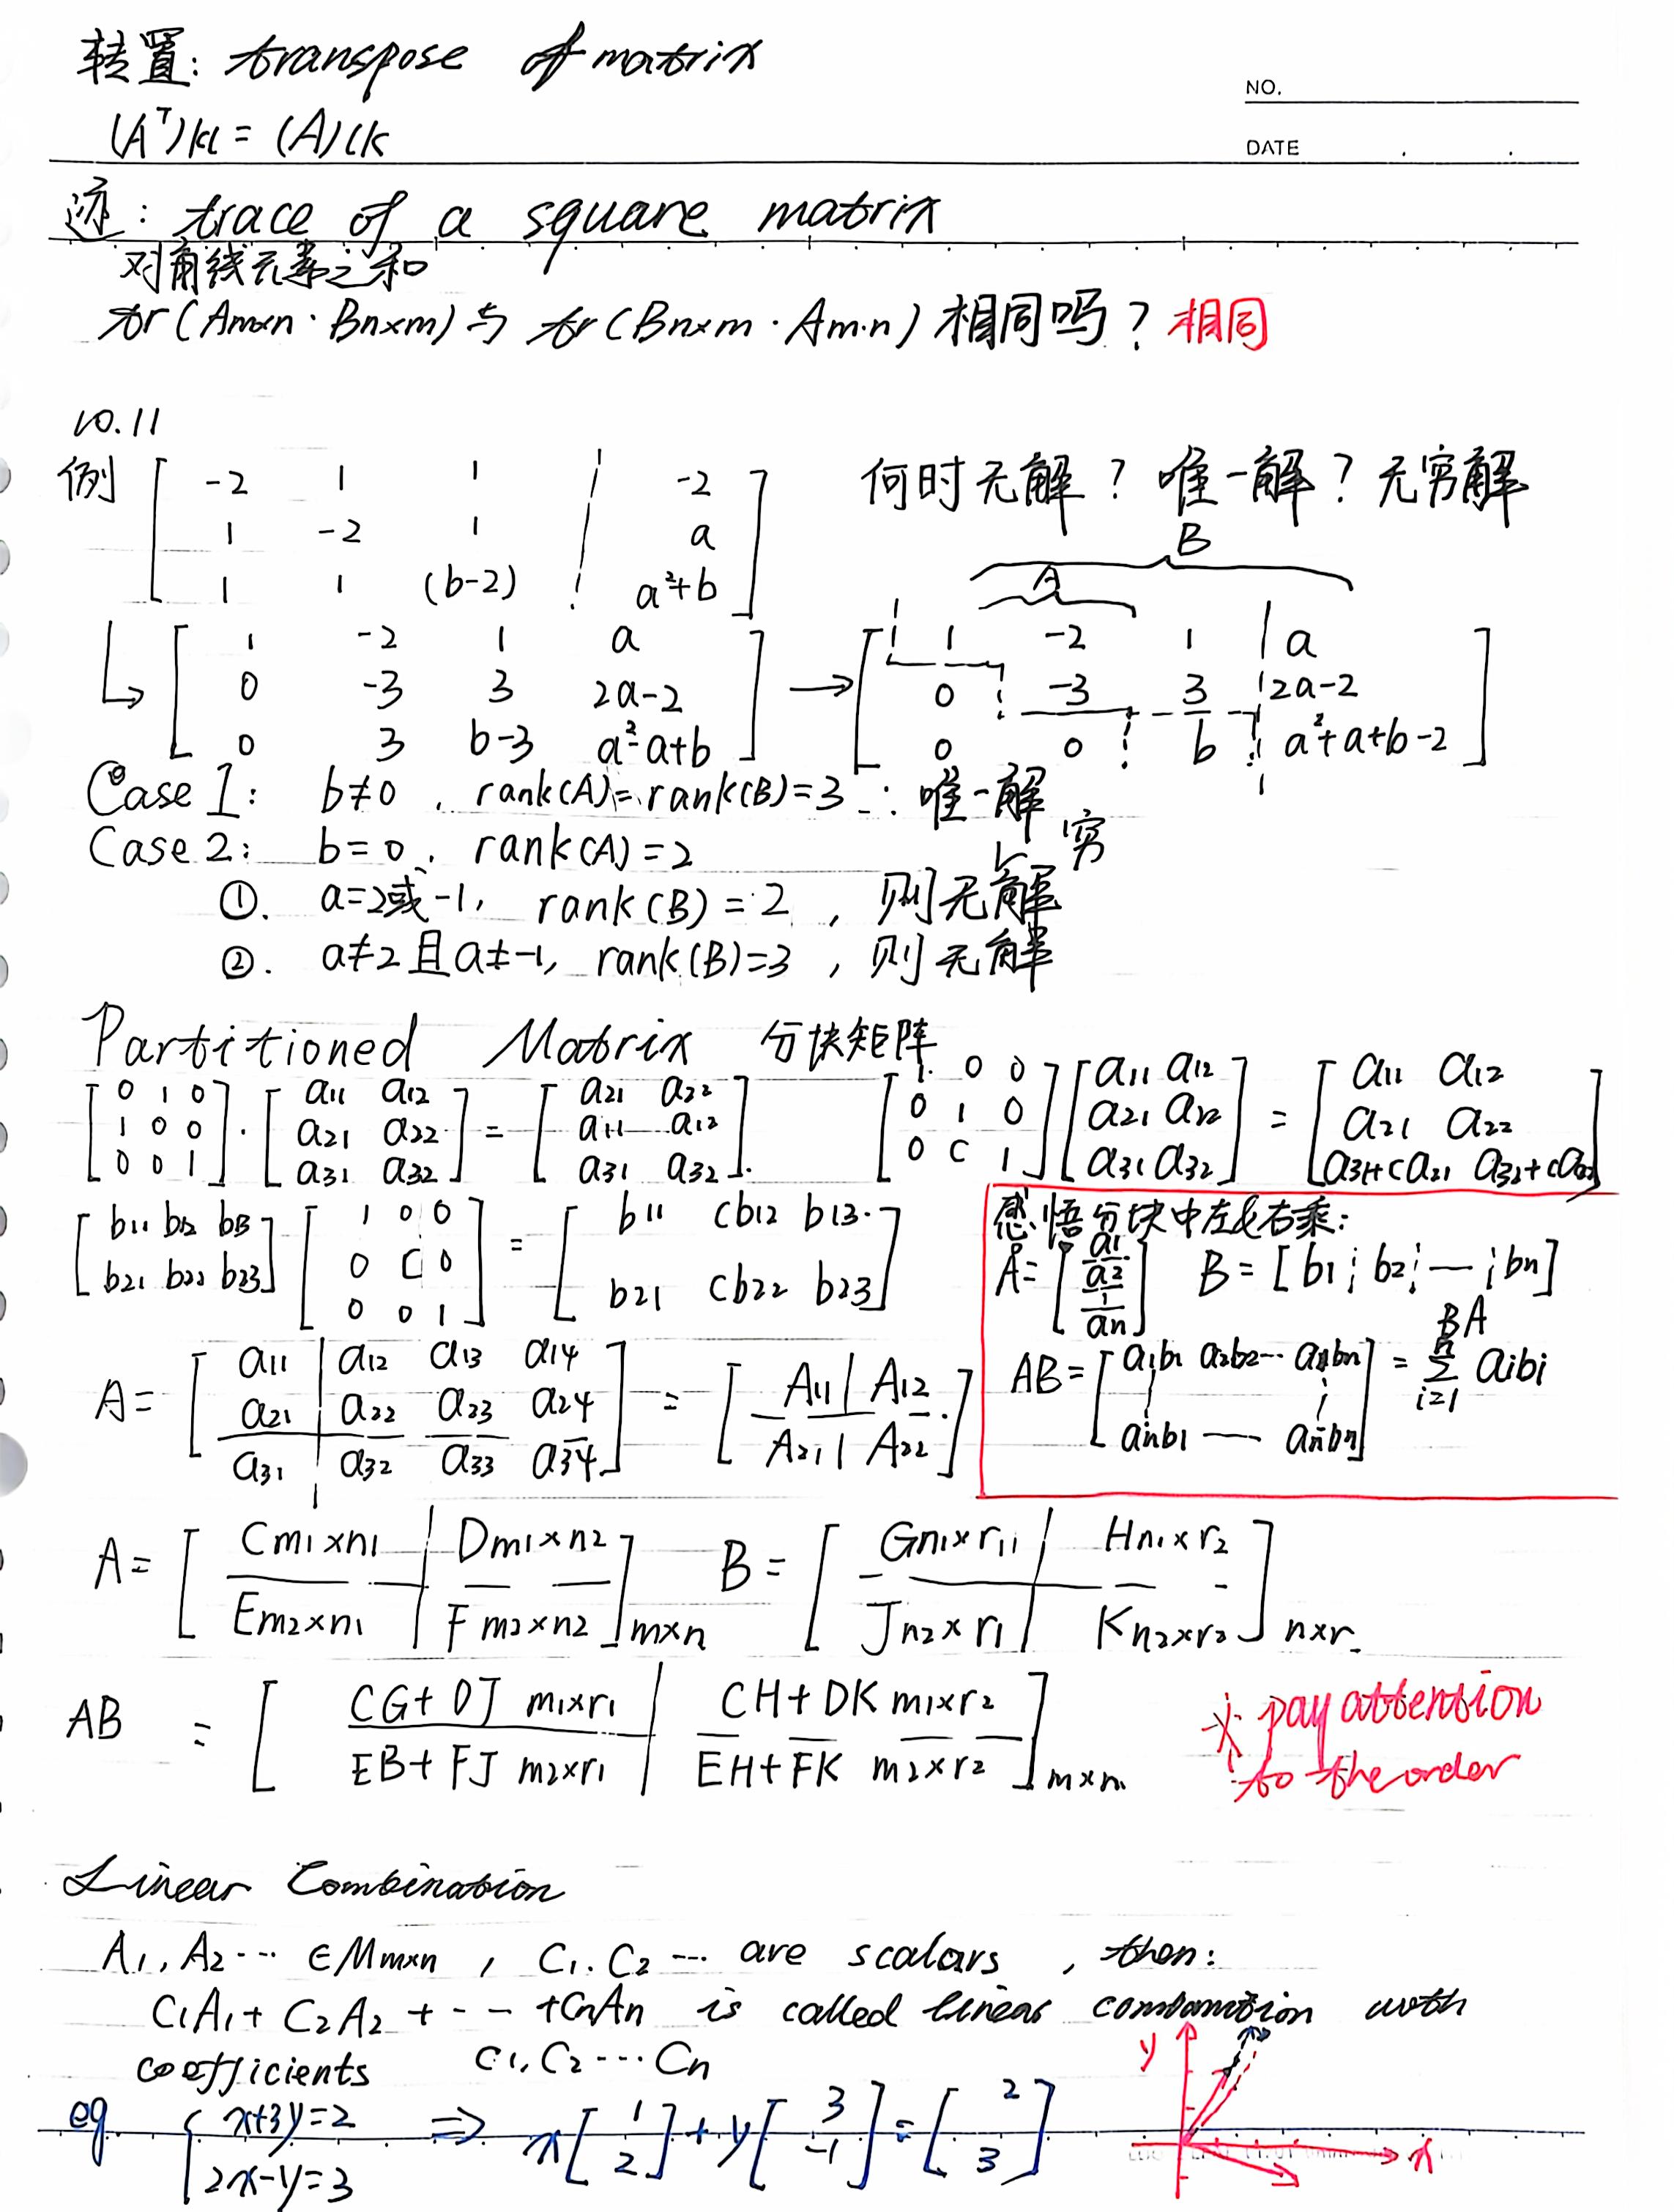 转置: transpose of matrix
(Aᵀ)kl = (A)lk
NO.
DATE
迹: trace of a square matrix
对角线元素之和
tr(Am×n · Bn×m) 与 tr(Bn×m · Am·n) 相同吗? 相同
10.11
例 [ -2 1 1 | -2
1 -2 1 | a
1 1 (b-2) | a²+b ]
何时无解? 唯一解? 无穷解
B
A
[ 1 -2 1 a
0 -3 3 2a-2
0 3 b-3 a²-a+b ]
→ [ 1 -2 1 | a
0 -3 3 | 2a-2
0 0 b | a²+a+b-2 ]
Case 1: b≠0, rank(A)=rank(B)=3 ∴ 唯一解
Case 2: b=0, rank(A)=2
①. a=2或-1, rank(B)=2, 则无穷解
②. a≠2且a≠-1, rank(B)=3, 则无解
Partitioned Matrix 分块矩阵
[ 0 1 0
1 0 0
0 0 1 ] · [ a11 a12
a21 a22
a31 a32 ] = [ a21 a22
a11 a12
a31 a32 ].
[ 1 0 0
0 1 0
0 c 1 ] [ a11 a12
a21 a22
a31 a32 ] = [ a11 a12
a21 a22
a31+ca21 a32+ca22 ]
[ b11 b12 b13
b21 b22 b23 ] [ 1 0 0
0 C 0
0 0 1 ] = [ b11 cb12 b13
b21 cb22 b23 ]
感悟分块中左&右乘:
A= [ a1
a2
¦
an ] B = [ b1 ¦ b2 ¦ — ¦ bn ]
BA
AB= [ a1b1 a2b2 ··· anbn
anb1 — anbn ] = Σ i=1 n aibi
A= [ a11 | a12 a13 a14
a21 | a22 a23 a24
a31 | a32 a33 a34 ] = [ A11 | A12
A21 | A22 ]
A= [ Cm1×n1 | Dm1×n2
Em2×n1 | Fm2×n2 ]m×n
B= [ Gn1×r11 | Hn1×r2
Jn2×r1 | Kn2×r2 ]n×r
AB = [ CG+DJ m1×r1 | CH+DK m1×r2
EB+FJ m2×r1 | EH+FK m2×r2 ]m×n
* pay attention
to the order
Linear Combination
A1, A2 ··· ∈ Mm×n, C1. C2 ··· are scalars, then:
C1A1 + C2A2 + - - +CnAn is called linear combination with
coefficients C1, C2 ··· Cn
y
eg { x+3y=2
2x-y=3
⇒ x[ 1
2 ] + y[ 3
-1 ] = [ 2
3 ]
x